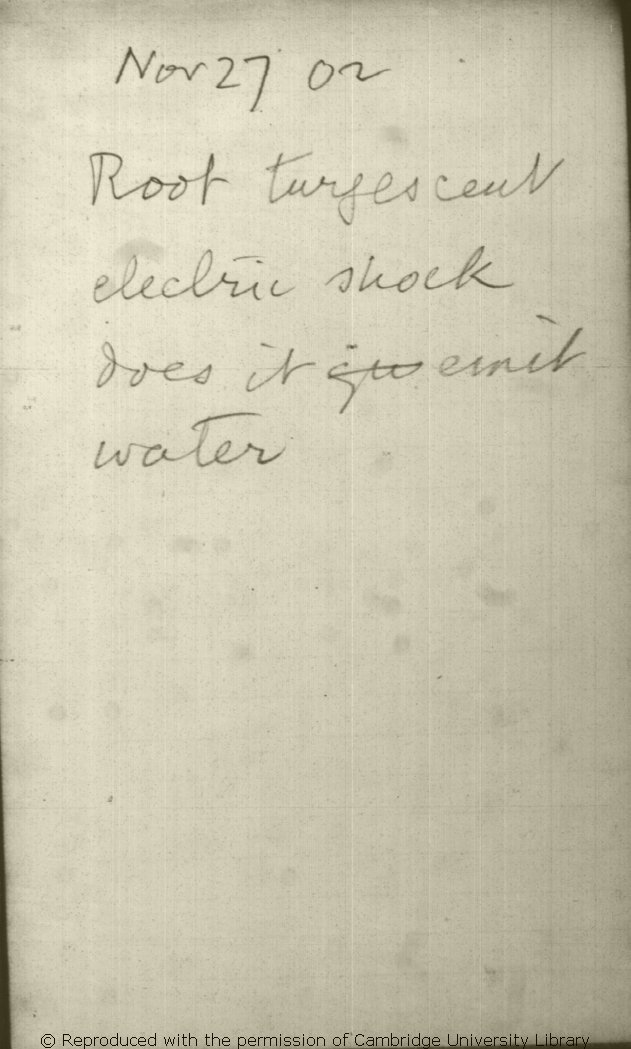 Nov 27 02
Root turgescent
electric shock
does it emit
water
© Reproduced with the permission of Cambridge University Library